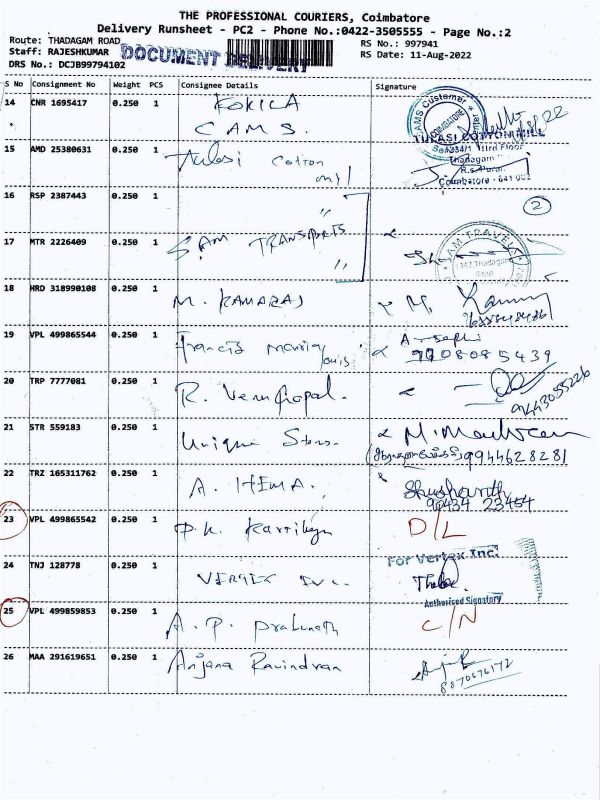 THE PROFESSIONAL COURIERS, Coimbatore
Delivery Runsheet - PC2 - Phone No.:0422-3505555 - Page No.:2
Route: THADAGAM ROAD
RS No.: 997941
Staff: RAJESHKUMAR
DOCUMENT DELIVERY
RS Date: 11-Aug-2022
DRS No.: DCJB99794102
S No Consignment No Weight PCS Consignee Details Signature
14 CNR 1695417 0.250 1 KOKILA
CAMS.
CAMS Customer
COIMBATORE
TULASI COTTON MILL
15 AMD 25380631 0.250 1 Tulasi Cotton
mil
IIIrd Floor
Thadagam
R.S. Puram
Coimbatore - 641 002
16 RSP 2387443 0.250 1 "
2
17 MTR 2226409 0.250 1 SAM TRANSPORTS
"
SAM TRAVELS
Thadagam
Road
18 HRD 318990108 0.250 1 M. KAMARAJ
M.
19 VPL 499865544 0.250 1 Francis Maria
Louis
9708085439
20 TRP 7777081 0.250 1 R. Venugopal.
9443055226
21 STR 559183 0.250 1 Unique Stores.
9944628281
22 TRZ 165311762 0.250 1 A. HEMA.
90434 23454
23 VPL 499865542 0.250 1 P.K. Karthikeyn
D/L
24 TNJ 128778 0.250 1 VERTEX INC.
For Vertex Inc.
Authorised Signatory
25 VPL 499859853 0.250 1 A. P. Prabunath
C/N
26 MAA 291619651 0.250 1 Anjana Ravindran
8870676172